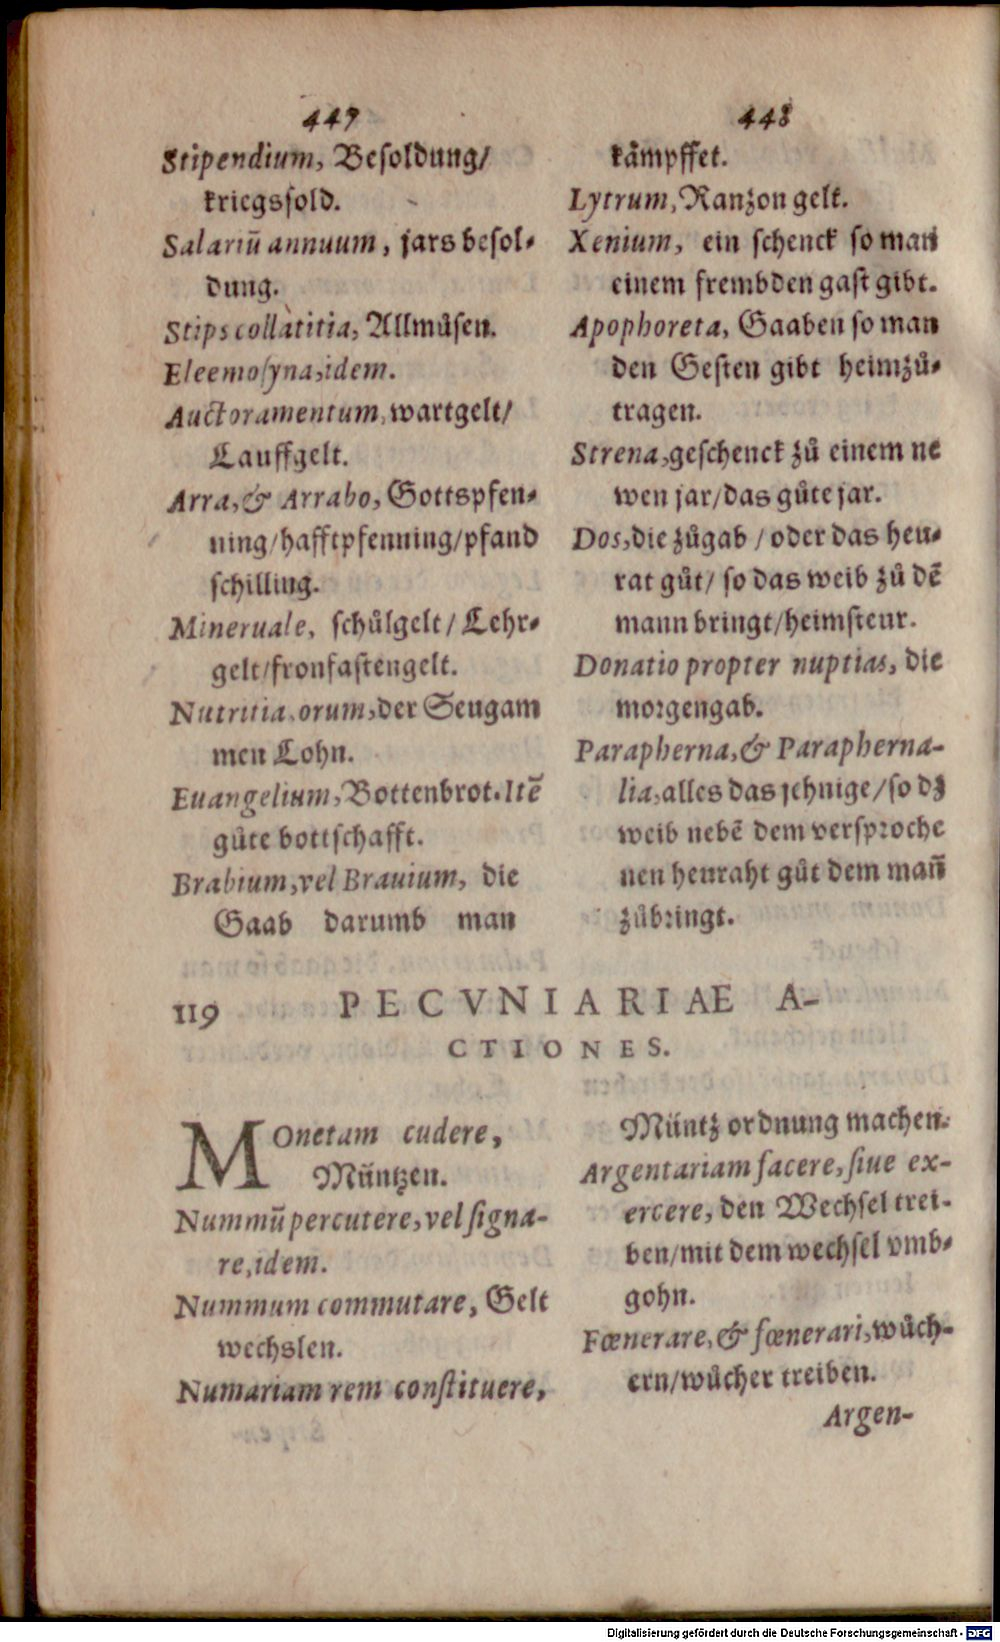 447
Stipendium, Besoldung/
kriegssold.
Salariū annuum, jars besol-
dung.
Stips collàtitia, Allmůsen.
Eleemosyna, idem.
Auctoramentum, wartgelt/
Lauffgelt.
Arra, & Arrabo, Gottspfen-
ning/hafftpfenning/pfand
schilling.
Mineruale, schůlgelt/ Lehr-
gelt/fronfastengelt.
Nutritia, orum, der Seugam
men Lohn.
Euangelium, Bottenbrot. Itē
gůte bottschafft.
Brabium, vel Brauium, die
Gaab darumb man
448
kämpffet.
Lytrum, Ranzon gelt.
Xenium, ein schenck so man
einem frembden gast gibt.
Apophoreta, Gaaben so man
den Gesten gibt heimzů-
tragen.
Strena, geschenck zů einem ne
wen jar/das gůte jar.
Dos, die zůgab / oder das heu-
rat gůt/ so das weib zů dē
mann bringt/heimsteur.
Donatio propter nuptias, die
morgengab.
Parapherna, & Parapherna-
lia, alles das jehnige/so dz
weib nebē dem versproche
nen heuraht gůt dem mañ
zůbringt.
119 PECVNIARIAE A-
CTIONES.
MOnetam cudere,
Müntzen.
Nummū percutere, vel signa-
re, idem.
Nummum commutare, Gelt
wechslen.
Numariam rem constituere,
Müntz ordnung machen.
Argentariam facere, siue ex-
ercere, den Wechsel trei-
ben/mit dem wechsel vmb-
gohn.
Fœnerare, & fœnerari, wůch-
ern/wůcher treiben.
Argen-
Digitalisierung gefördert durch die Deutsche Forschungsgemeinschaft - DFG